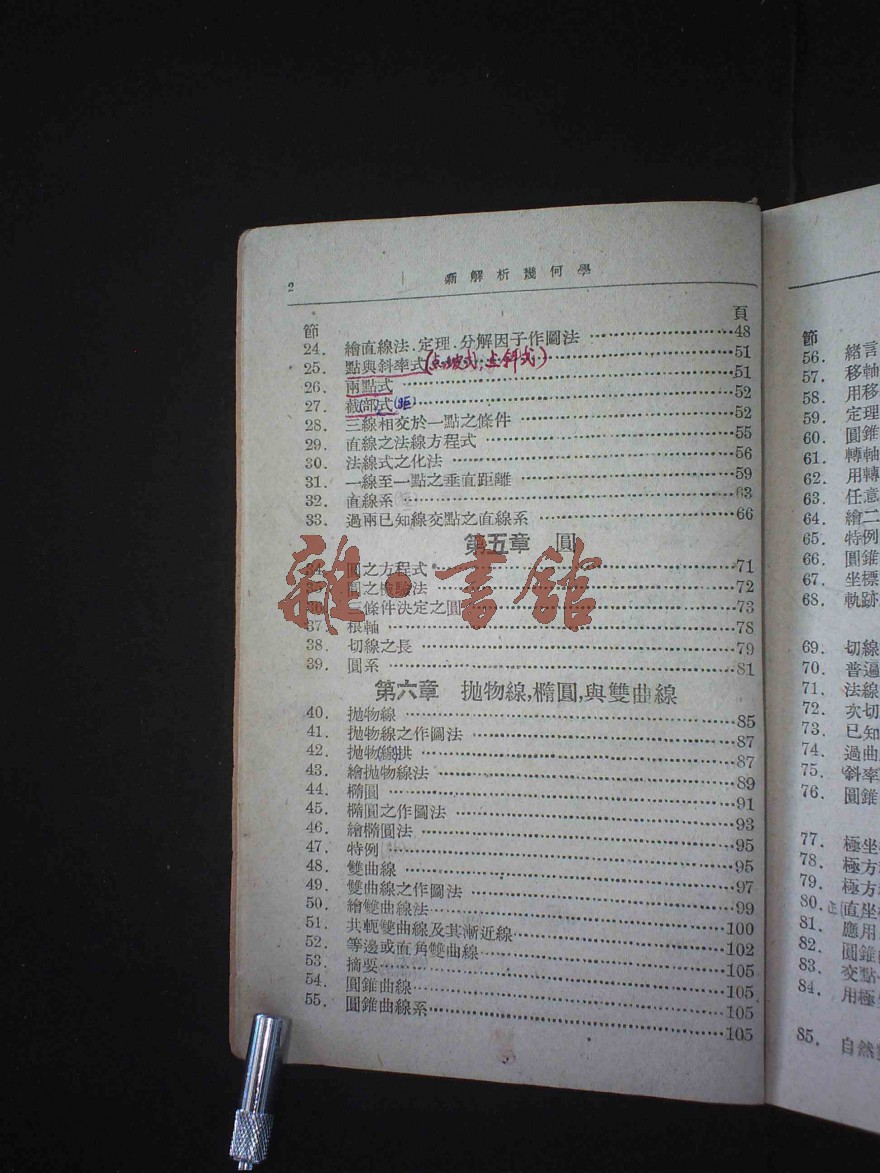 2 新解析幾何學
節 頁
24. 繪直線法.定理.分解因子作圖法 48
25. 點與斜率式(点坡式;点斜式) 51
26. 兩點式 51
27. 截部式(距) 52
28. 三線相交於一點之條件 52
29. 直線之法線方程式 55
30. 法線式之化法 56
31. 一線至一點之垂直距離 59
32. 直線系 63
33. 過兩已知線交點之直線系 66
第五章 圓
34. 圓之方程式 71
35. 圓之檢驗法 72
36. 三條件決定之圓 73
37. 根軸 78
38. 切線之長 79
39. 圓系 81
第六章 拋物線,橢圓,與雙曲線
40. 拋物線 85
41. 拋物線之作圖法 87
42. 拋物線拱 87
43. 繪拋物線法 89
44. 橢圓 91
45. 橢圓之作圖法 93
46. 繪橢圓法 95
47. 特例 95
48. 雙曲線 97
49. 雙曲線之作圖法 99
50. 繪雙曲線法 100
51. 共軛雙曲線及其漸近線 102
52. 等邊或直角雙曲線 105
53. 摘要 105
54. 圓錐曲線 105
55. 圓錐曲線系 105
雜·書館
節
56. 緒言
57. 移軸
58. 用移
59. 定理
60. 圓錐
61. 轉軸
62. 用轉
63. 任意
64. 繪二
65. 特例
66. 圓錐
67. 坐標
68. 軌跡
69. 切線
70. 普遍
71. 法線
72. 次切
73. 已知
74. 過曲
75. 斜率
76. 圓錐
77. 極坐
78. 極方
79. 極方
80. 正(直坐
81. 應用
82. 圓錐
83. 交點
84. 用極
85. 自然